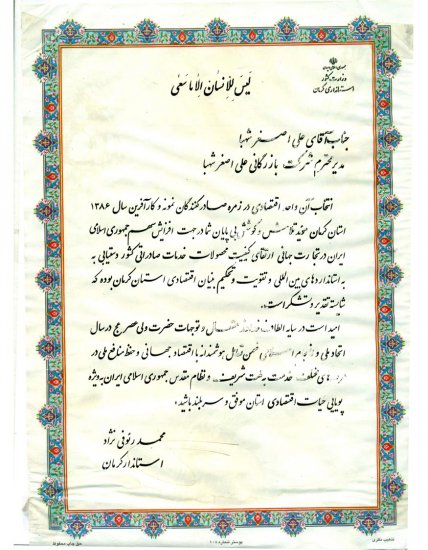 جمهوری اسلامی ایران
وزارت کشور
استانداری کرمان
لیس للانسان الا ما سعی
جناب آقای علی اصغر شهبا
مدیر محترم شرکت بازرگانی علی اصغر شهبا
انتخاب آن واحد اقتصادی در زمره صادرکنندگان نمونه و کارآفرین سال ۱۳۸۶
استان کرمان مؤید تلاش و کوشش بی پایان شما در جهت افزایش سهم جمهوری اسلامی
ایران در تجارت جهانی ارتقای کیفیت محصولات خدمات صادراتی کشور دستیابی به
استانداردهای بین المللی و تقویت و تحکیم بنیان اقتصادی استان کرمان بوده که
شایسته تقدیر و تشکر است.
امید است در سایه الطاف و توجهات حضرت ولی عصر عج در سال
اتحاد ملی و انسجام اسلامی ضمن تعامل هوشمندانه با اقتصاد جهانی و حفظ منافع ملی در
خدمت به ملت شریف و نظام مقدس جمهوری اسلامی ایران به ویژه
پویایی حیات اقتصادی استان موفق و سربلند باشید.
محمد رئوفی نژاد
استاندار کرمان
تذهیب فکری
پوستر شماره ۱۰۵
حق چاپ محفوظ